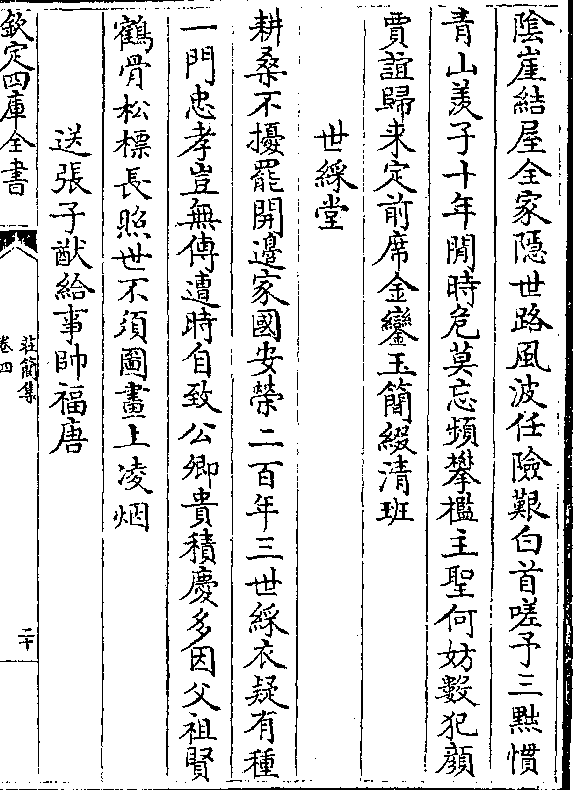 陰崖結屋全家隠世路風波任險艱白首嗟予三黜慣
青山羡子十年閒時危莫忘頻攀檻主聖何妨數犯顔
賈誼歸来定前席金鑾玉簡綴清班
世綵堂
耕桑不擾罷開邉家國安榮二百年三世綵衣疑有種
一門忠孝豈無傳遭時自致公卿貴積慶多因父祖賢
鶴骨松標長照世不須圖畫上凌烟
送張子猷給事帥福唐
欽定四庫全書
莊簡集
卷四
二十